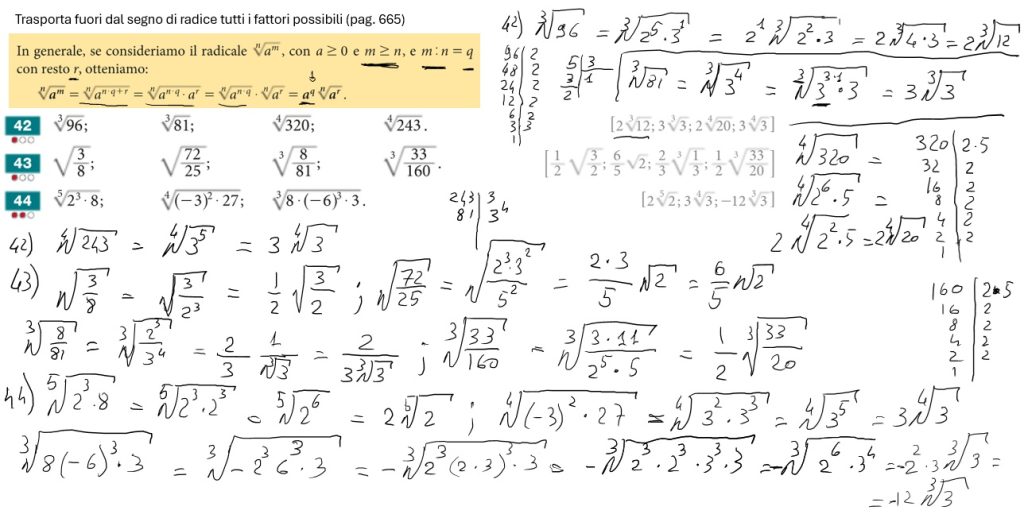 Trasporta fuori dal segno di radice tutti i fattori possibili (pag. 665)
In generale, se consideriamo il radicale ⁿ√aᵐ, con a ≥ 0 e m ≥ n, e m : n = q
con resto r, otteniamo:
ⁿ√aᵐ = ⁿ√aⁿ·q⁺ʳ = ⁿ√aⁿ·q · aʳ = ⁿ√aⁿ·q · ⁿ√aʳ = a^q ⁿ√aʳ.
42 ³√96; ³√81; ⁴√320; ⁴√243. [2 ³√12; 3 ³√3; 2 ⁴√20; 3 ⁴√3]
43 √(3/8); √(72/25); ³√(8/81); ³√(33/160). [1/2 √(3/2); 6/5 √2; 2/3 ³√(1/3); 1/2 ³√(33/20)]
44 ⁵√(2³ · 8); ⁴√((−3)² · 27); ³√(8 · (−6)³ · 3). [2 ⁵√2; 3 ⁴√3; −12 ³√3]
42) ³√96 = ³√(2⁵·3¹) = 2¹ ³√(2²·3) = 2 ³√(4·3) = 2 ³√12
96 | 2
48 | 2
24 | 2
12 | 2
6 | 2
3 | 3
1
5 | 3
3 | 1
2
³√81 = ³√3⁴ = ³√(3³·¹·3) = 3 ³√3
⁴√320 =
⁴√(2⁶·5) =
2 ⁴√(2²·5) = 2 ⁴√20
320 | 2·5
32 | 2
16 | 2
8 | 2
4 | 2
2 | 2
1
243 | 3
81 | 3⁴
42) ⁴√243 = ⁴√3⁵ = 3 ⁴√3
43) √(3/8) = √(3/2³) = 1/2 √(3/2) ; √(72/25) = √(2³·3²/5²) = 2·3/5 √2 = 6/5 √2
³√(8/81) = ³√(2³/3⁴) = 2/3 1/³√3 = 2/(3 ³√3) ; ³√(33/160) = ³√(3·11/2⁵·5) = 1/2 ³√(33/20)
160 | 2·5
16 | 2
8 | 2
4 | 2
2 | 2
1
44) ⁵√(2³·8) = ⁵√(2³·2³) = ⁵√2⁶ = 2 ⁵√2 ; ⁴√((−3)²·27) = ⁴√(3²·3³) = ⁴√3⁵ = 3 ⁴√3
³√(8(−6)³·3) = ³√(−2³6³·3) = −³√(2³(2·3)³·3) = −³√(2³·2³·3³·3) = −³√(2⁶·3⁴) = −2²·3 ³√3 =
= −12 ³√3